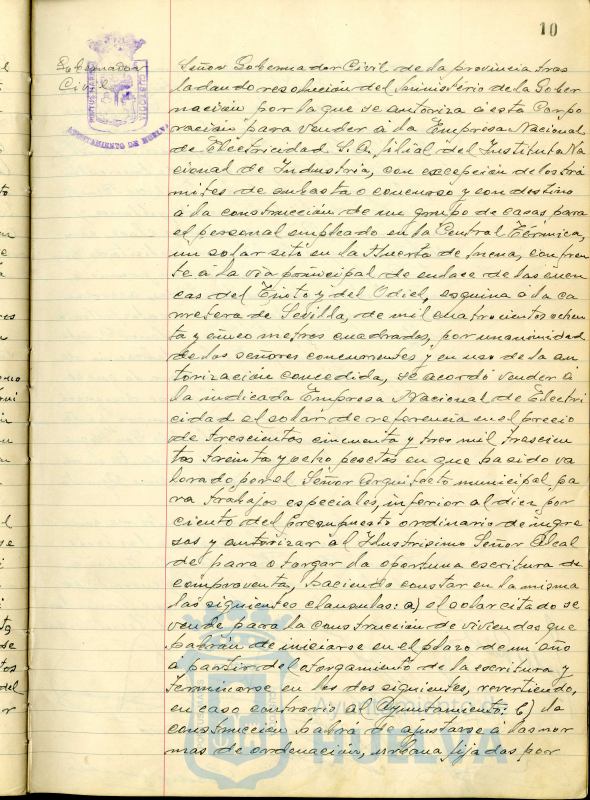 10
Gobernador
Civil
AYUNTAMIENTO DE HUELVA
Señor Gobernador Civil de la provincia tras
ladando resolución del Ministerio de la Gober
nación por la que se autoriza á esta Corpo
ración para vender á la Empresa Nacional
de Electricidad S. A. filial del Instituto Na
cional de Industria, con excepción de los trá
mites de subasta o concurso y con destino
á la construcción de un grupo de casas para
el personal empleado en la Central Térmica,
un solar sito en la Huerta de Mena, con fren
te á la vía principal de enlace de las cuen
cas del Tinto y del Odiel, esquina á la ca
rretera de Sevilla, de mil cuatrocientos ochen
ta y cinco metros cuadrados, por unanimidad
de los señores concurrentes y en uso de la au
torización concedida, se acordó vender á
la indicada Empresa Nacional de Electri
cidad el solar de referencia en el precio
de trescientos cincuenta y tres mil trescien
tas treinta y ocho pesetas en que ha sido va
lorado, por el Señor Arquitecto municipal, pa
ra trabajos especiales, inferior al diez por
ciento del Presupuesto ordinario de ingre
sos y autorizar al Ilustrísimo Señor Alcal
de para otorgar la oportuna escritura de
compraventa, haciendo constar en la misma
las siguientes clausulas: a) el solar citado se
vende para la construcción de viviendas que
habrán de iniciarse en el plazo de un año
á partir del otorgamiento de la escritura y
terminarse en los dos siguientes, revertiendo,
en caso contrario al Ayuntamiento: b) la
construcción habrá de ajustarse á las nor
mas de ordenación, urbana fijadas por
HUELVA